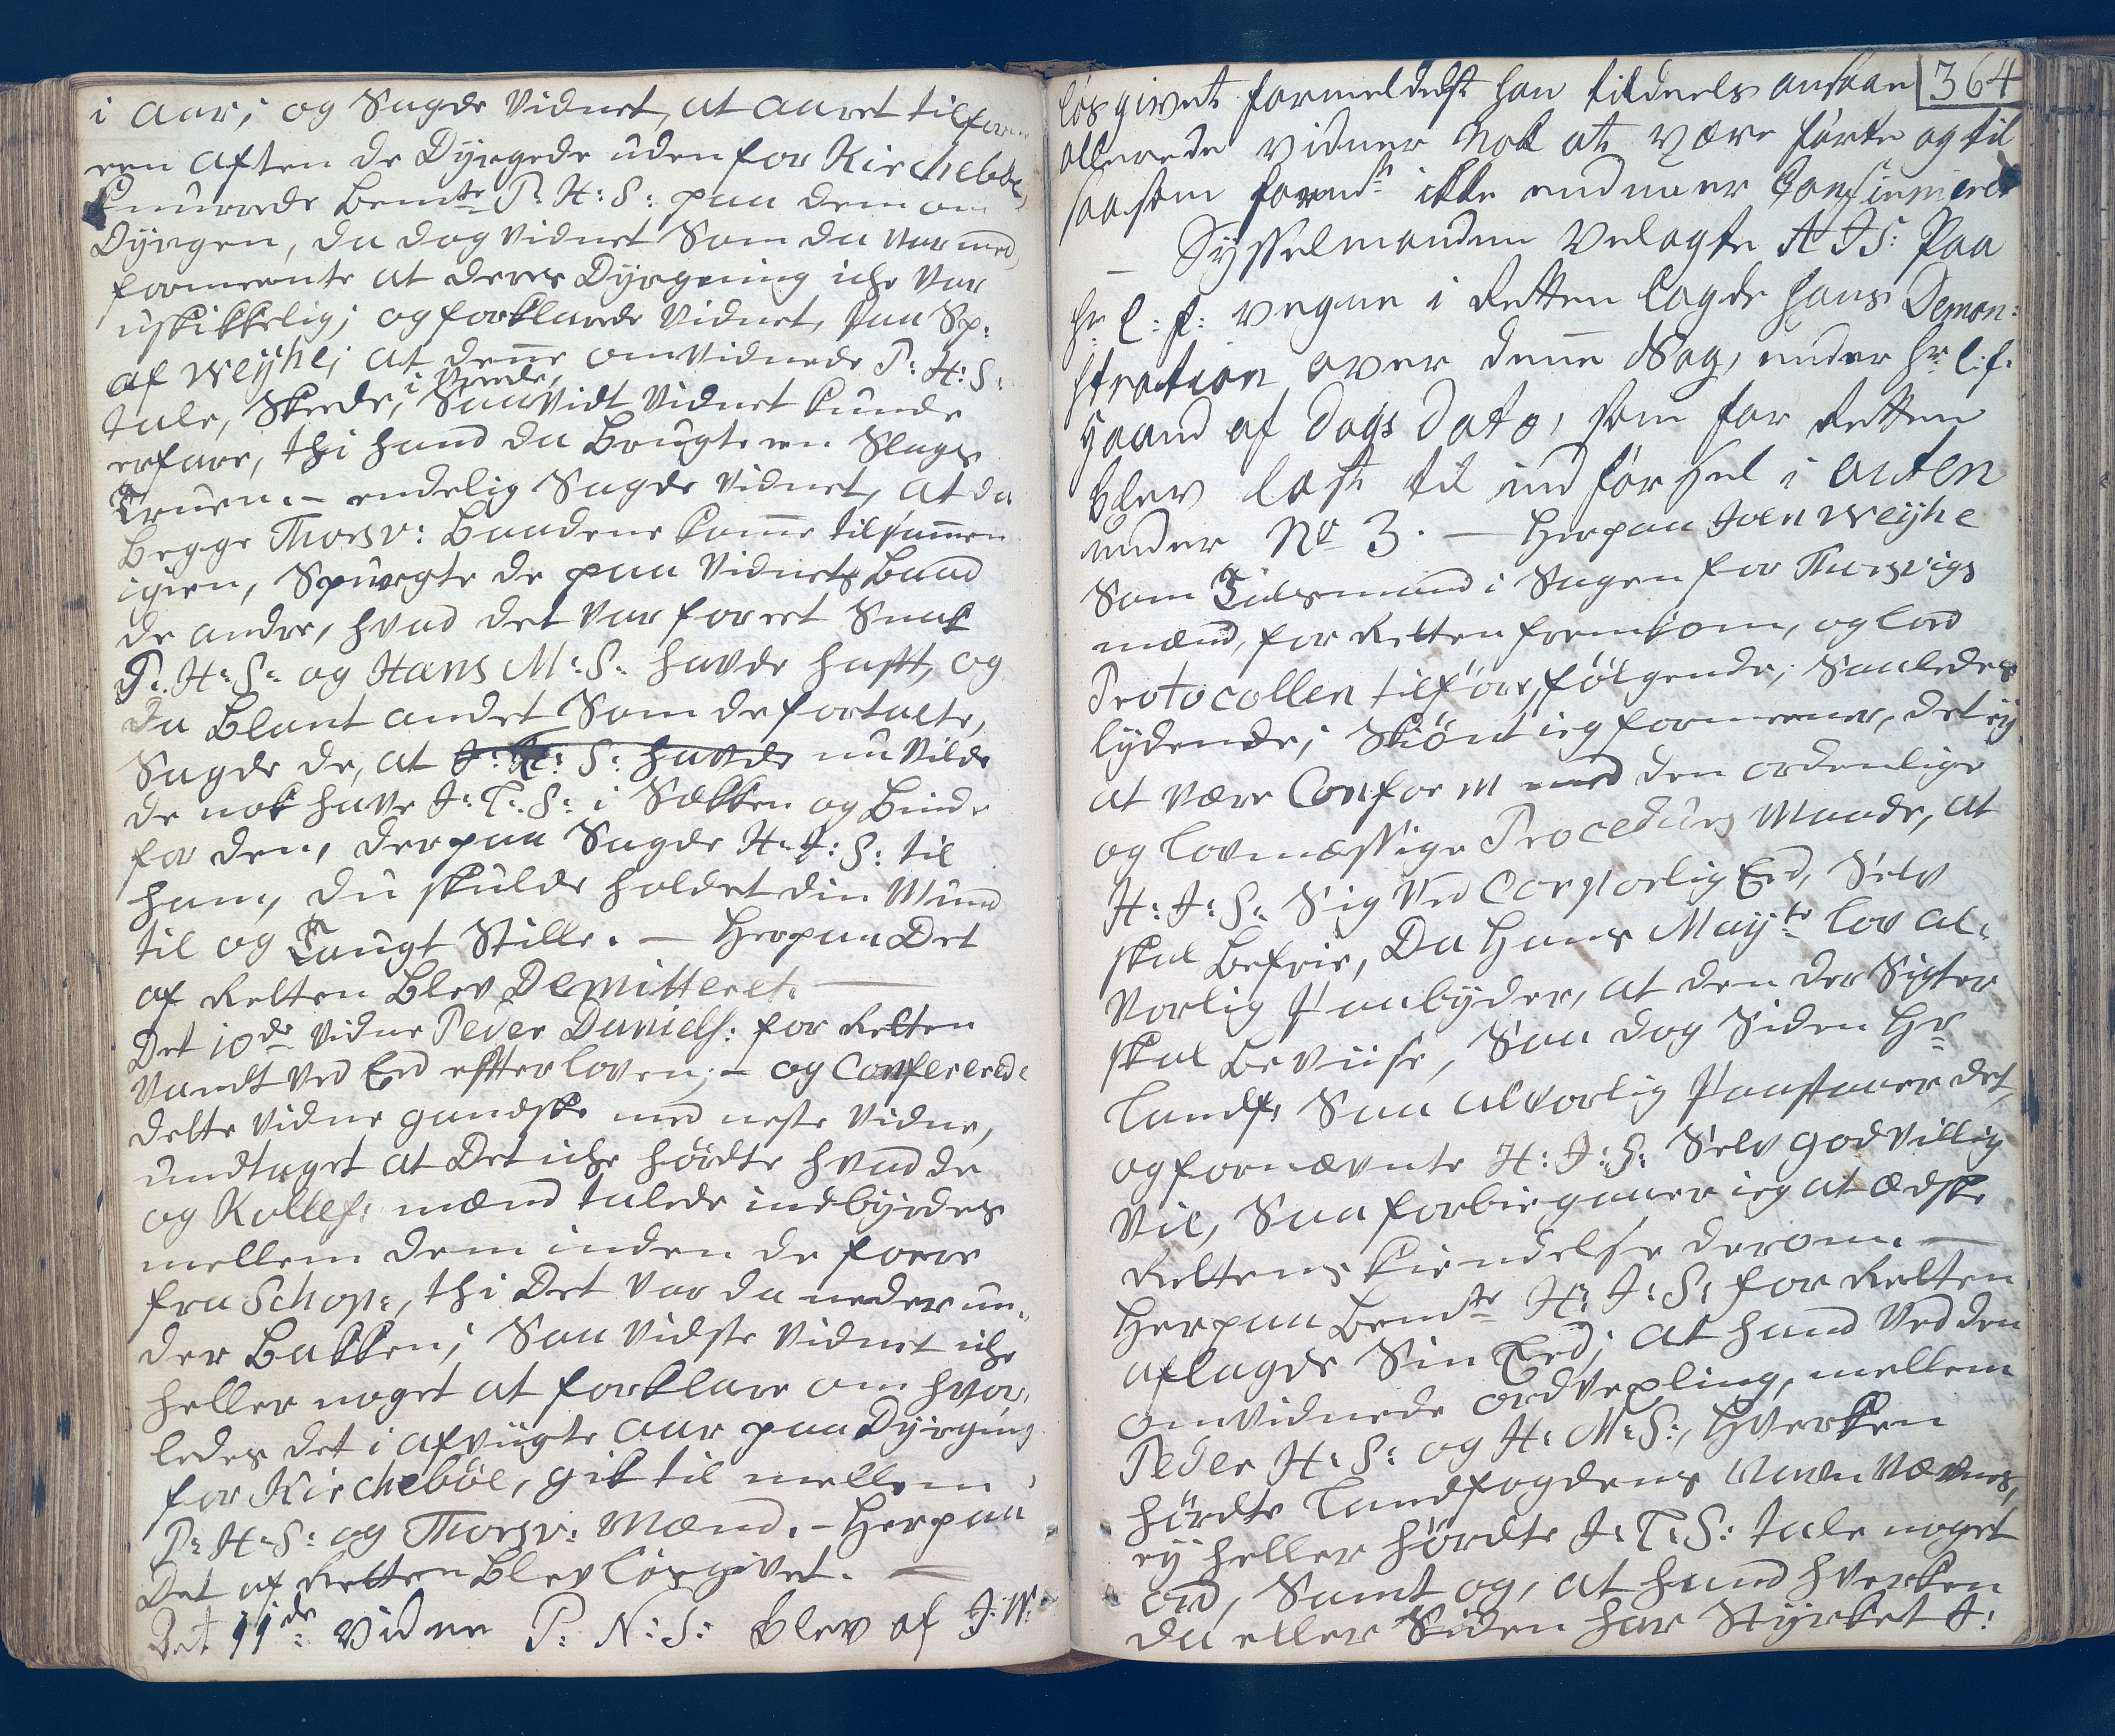 i Aar; og Sagde Vidnet, at aaret tilforn
een Aften de Dyrgede uden for Kirchebøe,
knurrede bemte P: H: S: paa dem om
Dyrgen, da dog Vidnet som da var med,
formeente at deres Dyrgning iche var
uskikkelig; og forklarede Vidnet, paa Sp:
af Weyhe; at denne omvidnede P: H: S:
tale, Skeede, i Vrede, Saavidt Vidnet kunde
erfare, thi hand da Brugte en Slags
Truen. – endelig Sagde Vidnet, at da
Begge Thorsv: Baadene komme tilsammen
igien, Spurgte de paa Vidnets Baad
de andre, hvad det var for eet Snak
P. H: S: og Hans M: S: havde hafft, og
da Blant andet Som de fortalte,
Sagde de, at J: H: S: havde nu vilde
de nok have J: T: S: i Sækken og Binde
for den, derpaa Sagde H: J: S: til
ham, du skulde holdet din Mund
til og Taugt Stille. – Herpaa Det
af Retten Blev Demitteret. —
Det 10de Vidne Peder Daniels: for Retten
Vandt ved Eed effter loven; – og Confererede
dette Vidne gandske med neste Vidne,
undtaget at Det iche hørdte hvad de
og Kollef: mænd talede indbyrdes
mellem dem inden de foere
fra Schop:, thi Det var da neder un-
der Bakken; Saa vidste Vidnet iche
heller noget at forklare om hvor-
ledes det i afvigte aar paa Dyrging
for Kirchebøe, gik til mellem
P: H: S: og Thorsv: Mænd. – Herpaa
Det af Retten Blev løsgivet. —
Det 11de Vidne P: N: S: blev af J: W:
364
løsgivet formedelst han tildeels ansaae
allerede vidner nok at være førte og til
saasom ikke endnu er
– Sysselmanden Velagte H J S: paa
Hr L: f: vegne i Retten lagde hans Demon:
stration over denne Sag, under Hr L: f:
Haand af Dags Dato, som for Retten
blev læst til indførsel i acten
under No 3. — Herpaa Joen Weyhe
Som Talsmand i Sagen for Thorsvigs
mænd, for Retten fremkom, og lod
Protocollen tilføre følgende, Saaledes
lydende; Skiønt ieg formeener, det ey
at være Conform med den ordenlige
og lovmæssige Procedures Maade, at
H: J: S: Sig ved Corporlig Eed, Selv
skal befrie, Da Hans Mayts lov al-
vorlig paabyder, at den der Sigter
skal beviise, Saa dog Siden Hr
Landf: Saa alvorlig paastaaer det,
og fornævnte H: J: S: Selv godvillig
vil, Saa forbiegaaer ieg at ædske
Rettens kiendelse derom. —
Herpaa bemte H: J: S: for Retten
aflagde Sin Eed; at hand ved den
omvidnede ordvexling, mellem
Peder H: S: og H: M: S:, hverken
hørdte Landfogdens Navn Nævnes,
ey heller hørdte J: T: S: tale noget
ord, Samt og, at hand hverken
da eller Siden har Styrket J: